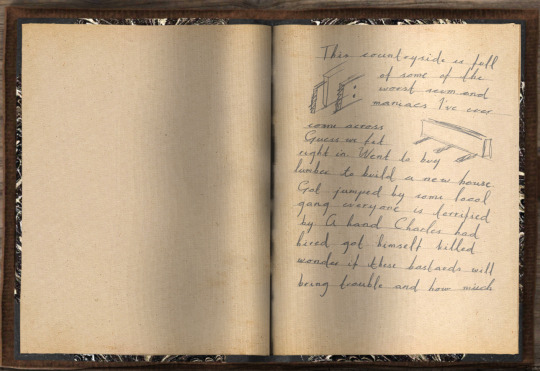 This countryside is full
of some of the
worst scum and
maniacs I've ever
come across
Guess we fit
right in. Went to buy
lumber to build a new house
Got jumped by some local
gang everyone is terrified
by A hand Charles had
hired got himself killed
wonder if these bastards will
bring trouble and how much